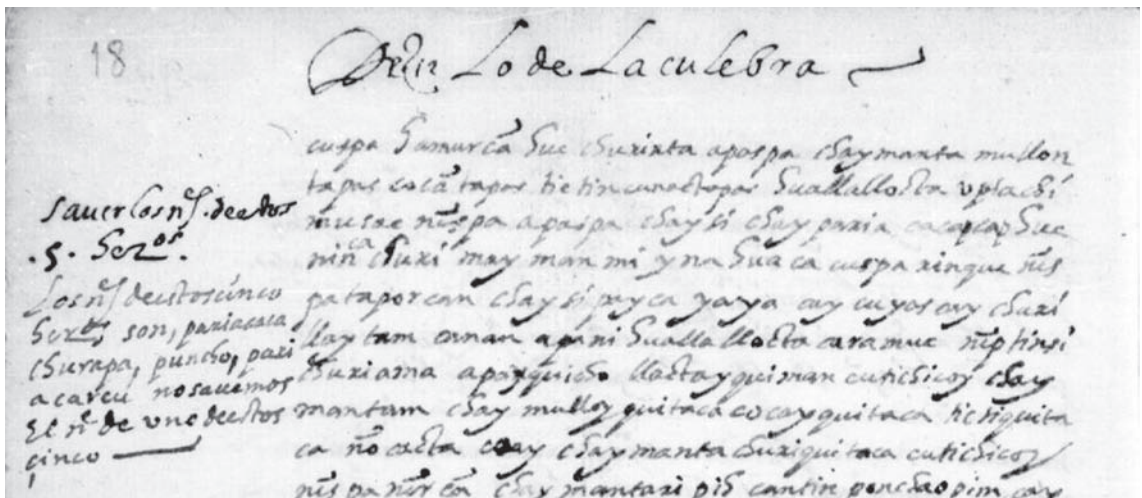 18
Dezir Lo de La culebra
cuspa hamurcã huc churinta apaspa chaymanta mullon
tapas cocãtapas tictincunactapas huallallocta vpiachi
musac ñispa apaspa chaysi chay paria cacap cap huc
niñ ca churi may man mi yna huacacuspa rinque ñis
pa taporcan chaysi payca yaya cay cuyascay churi
llaytam canan apani huallallocta caramuc ñiptinsi
churi ama apaychicho llactayquiman cutichicoy chay
mantam chay mulloyquitaca cocayquitaca tictiquita
ca ñocacta coay chaymanta churiquitaca cutichicoy
ñispa ñircã chaymantari pih cantin ponchaopim cay
sauer los nẽs. destos
.5. heros.
Los nẽs destos cinco
heros, son, pariacaca
churapa, puncho, pari
acarcu no sauemos
El nẽ de vno destos
cinco